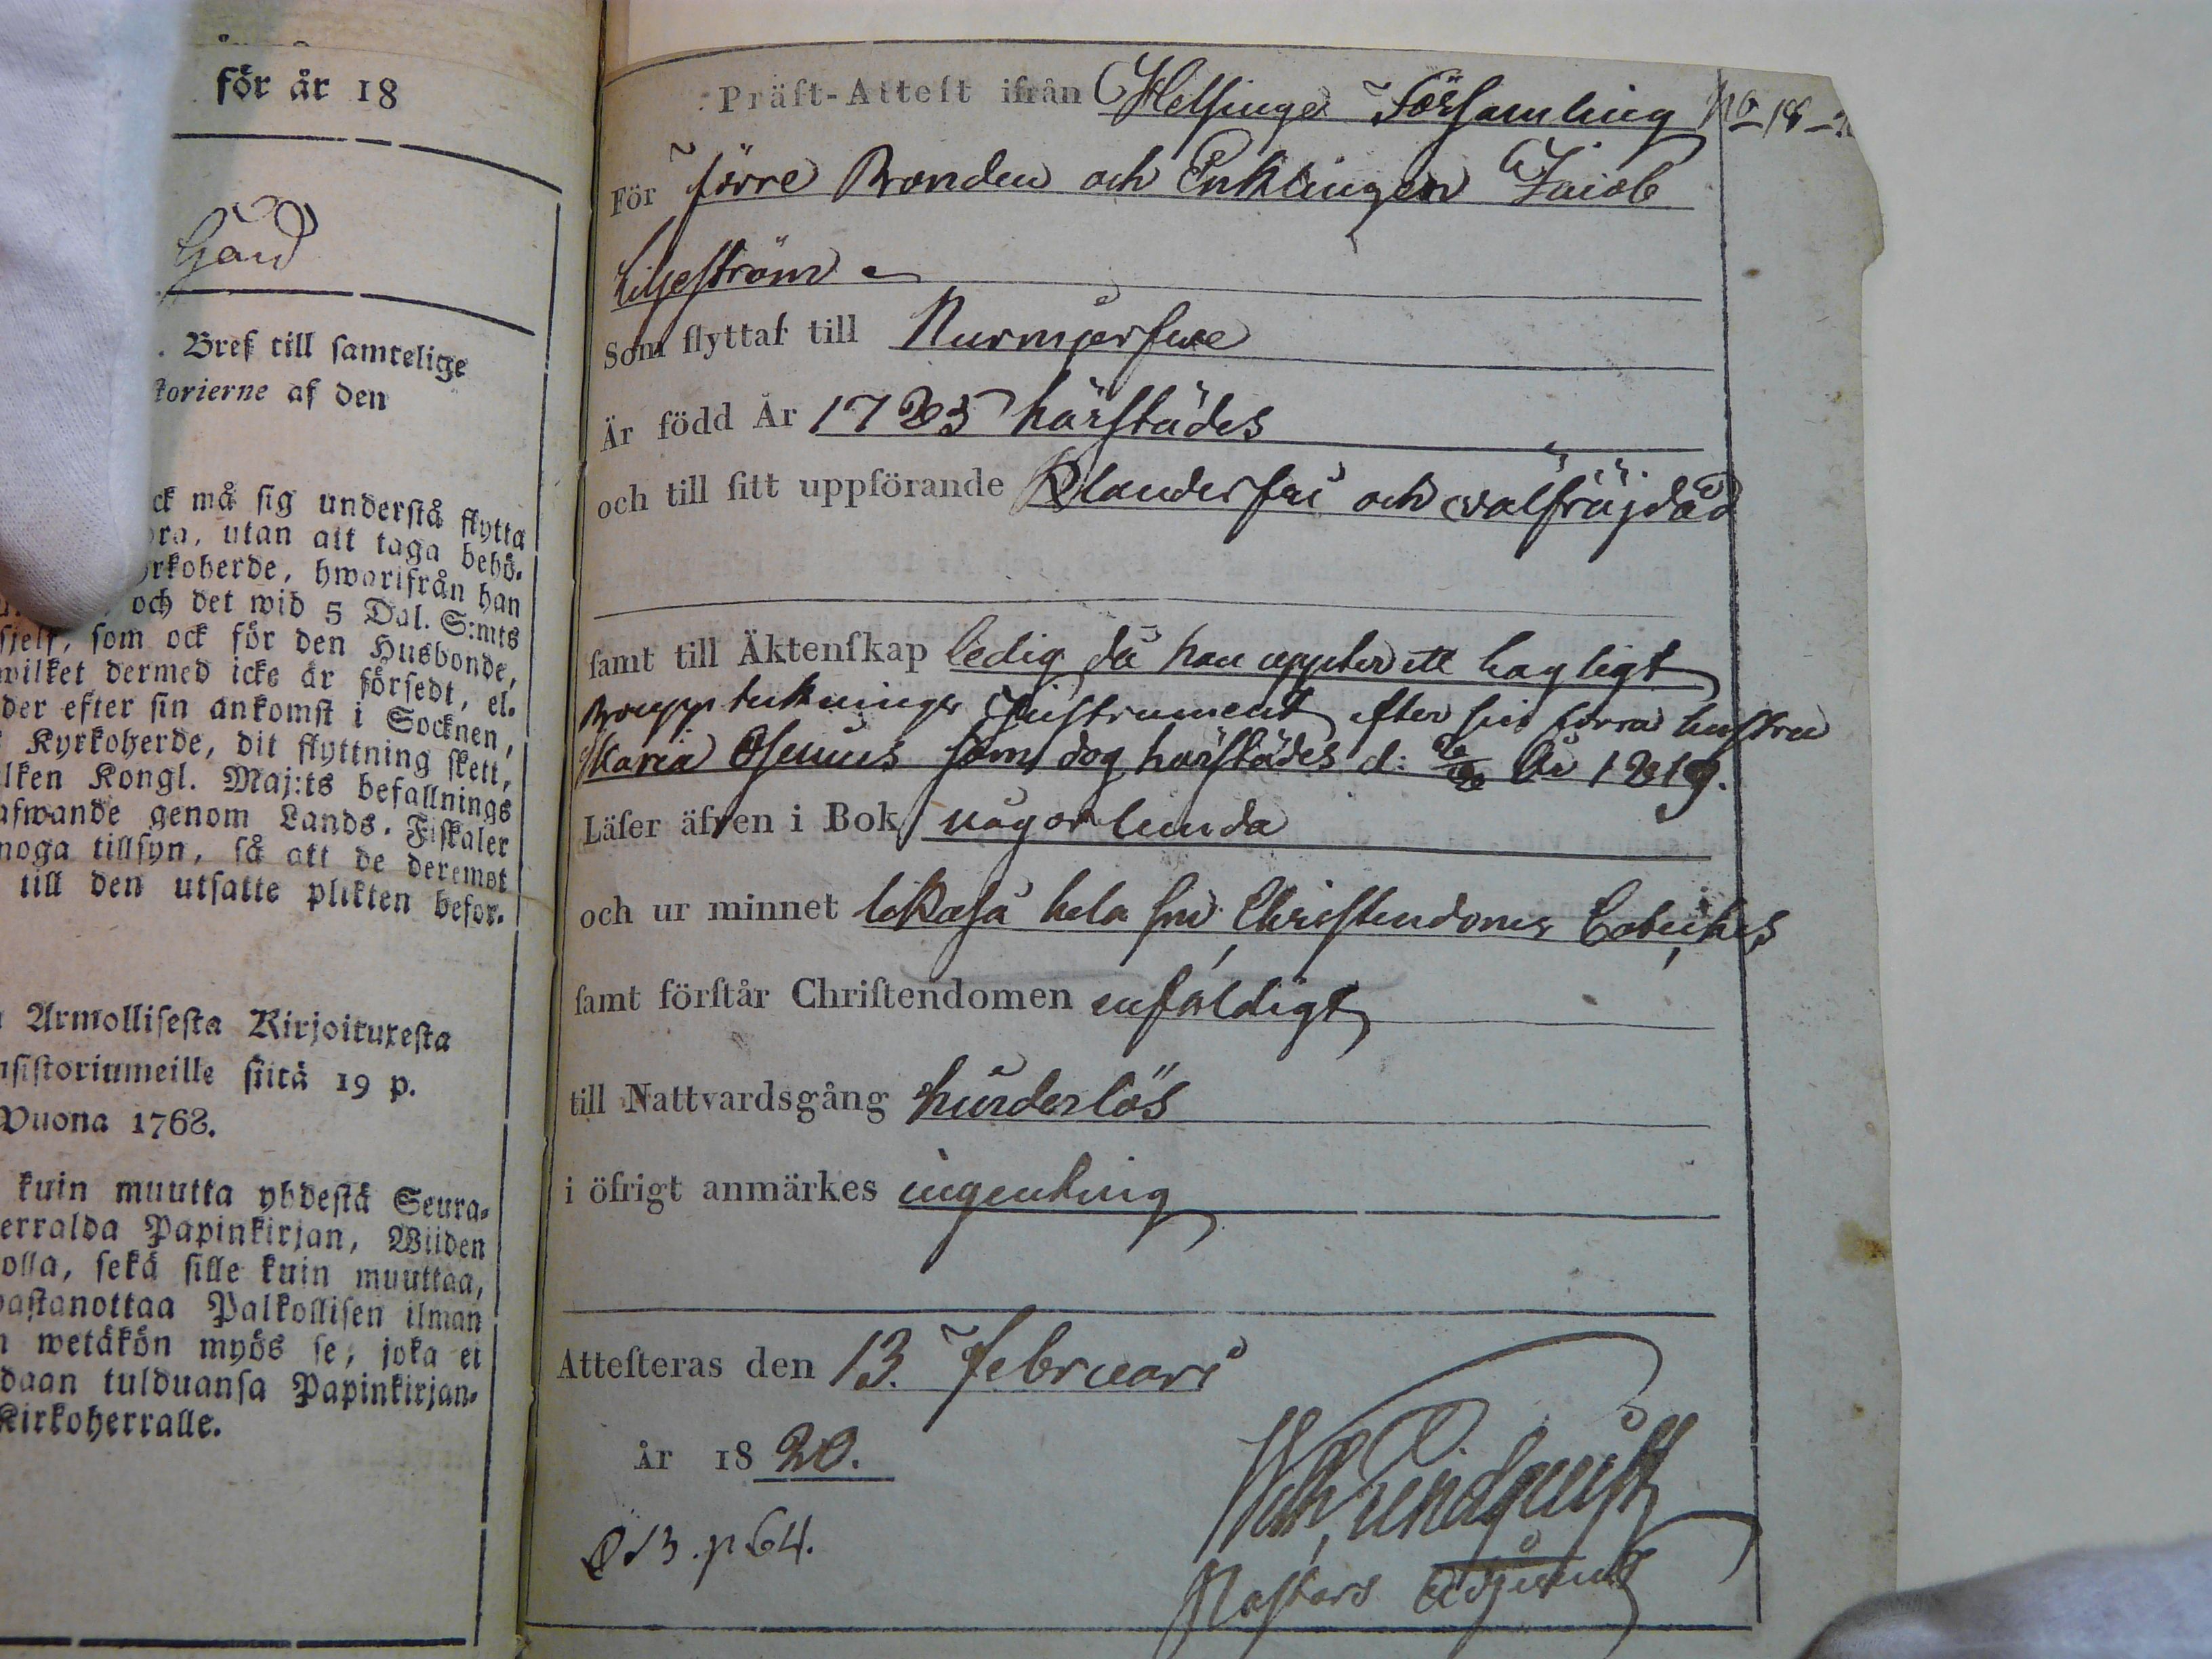 för år 18
Gård
. Bref till samtelige
torierne af den
ck må sig understå flytta
ra, utan att taga behö-
yrkoherde, hwarifrån han
och det wid 5 Dal. S:mts
sjelf, som ock för den Husbonde,
wilket dermed icke är försedt, el-
der efter sin ankomst i Socknen,
Kyrkoherde, dit flyttning skett,
lken Kongl. Maj:ts befallnings
afwande genom Lands-Fiskaler
noga tillsyn, så att de deremot
till den utsatte plikten befor-
Armollisesta Kirjoituxesta
nsistoriumeille siitä 19 p.
Wuona 1768.
kuin muutta yhdestä Seura-
erralda Papinkirjan, Wiiden
olla, sekä sille kuin muuttaa,
vastanottaa Palkollisen ilman
wetäkön myös se, joka ei
daan tulduansa Papinkirjan-
Kirkoherralle.
Präst-Attest ifrån Helsinge Församling No 18
För förre Bonden och Enklingen Jacob
Liljeström
Som flyttar till Nurmjerfwe
Är född År 1783 härstädes
och till sitt uppförande Klanderfri och välfräjdad
samt till Äktenskap ledig då han uppter ett lagligt
Bouppteknings Instrument efter sin förra hustru
Maria som dog härstädes d: År 1819.
Läser äfven i Bok någorlunda
och ur minnet likaså hela sin Christendoms
samt förstår Christendomen enfäldigt
till Nattvardsgång hinderlös
i öfrigt anmärkes ingenting
Attesteras den 13. Februari
År 1820.
p 64.
Lindquist
Pastors Adjunct